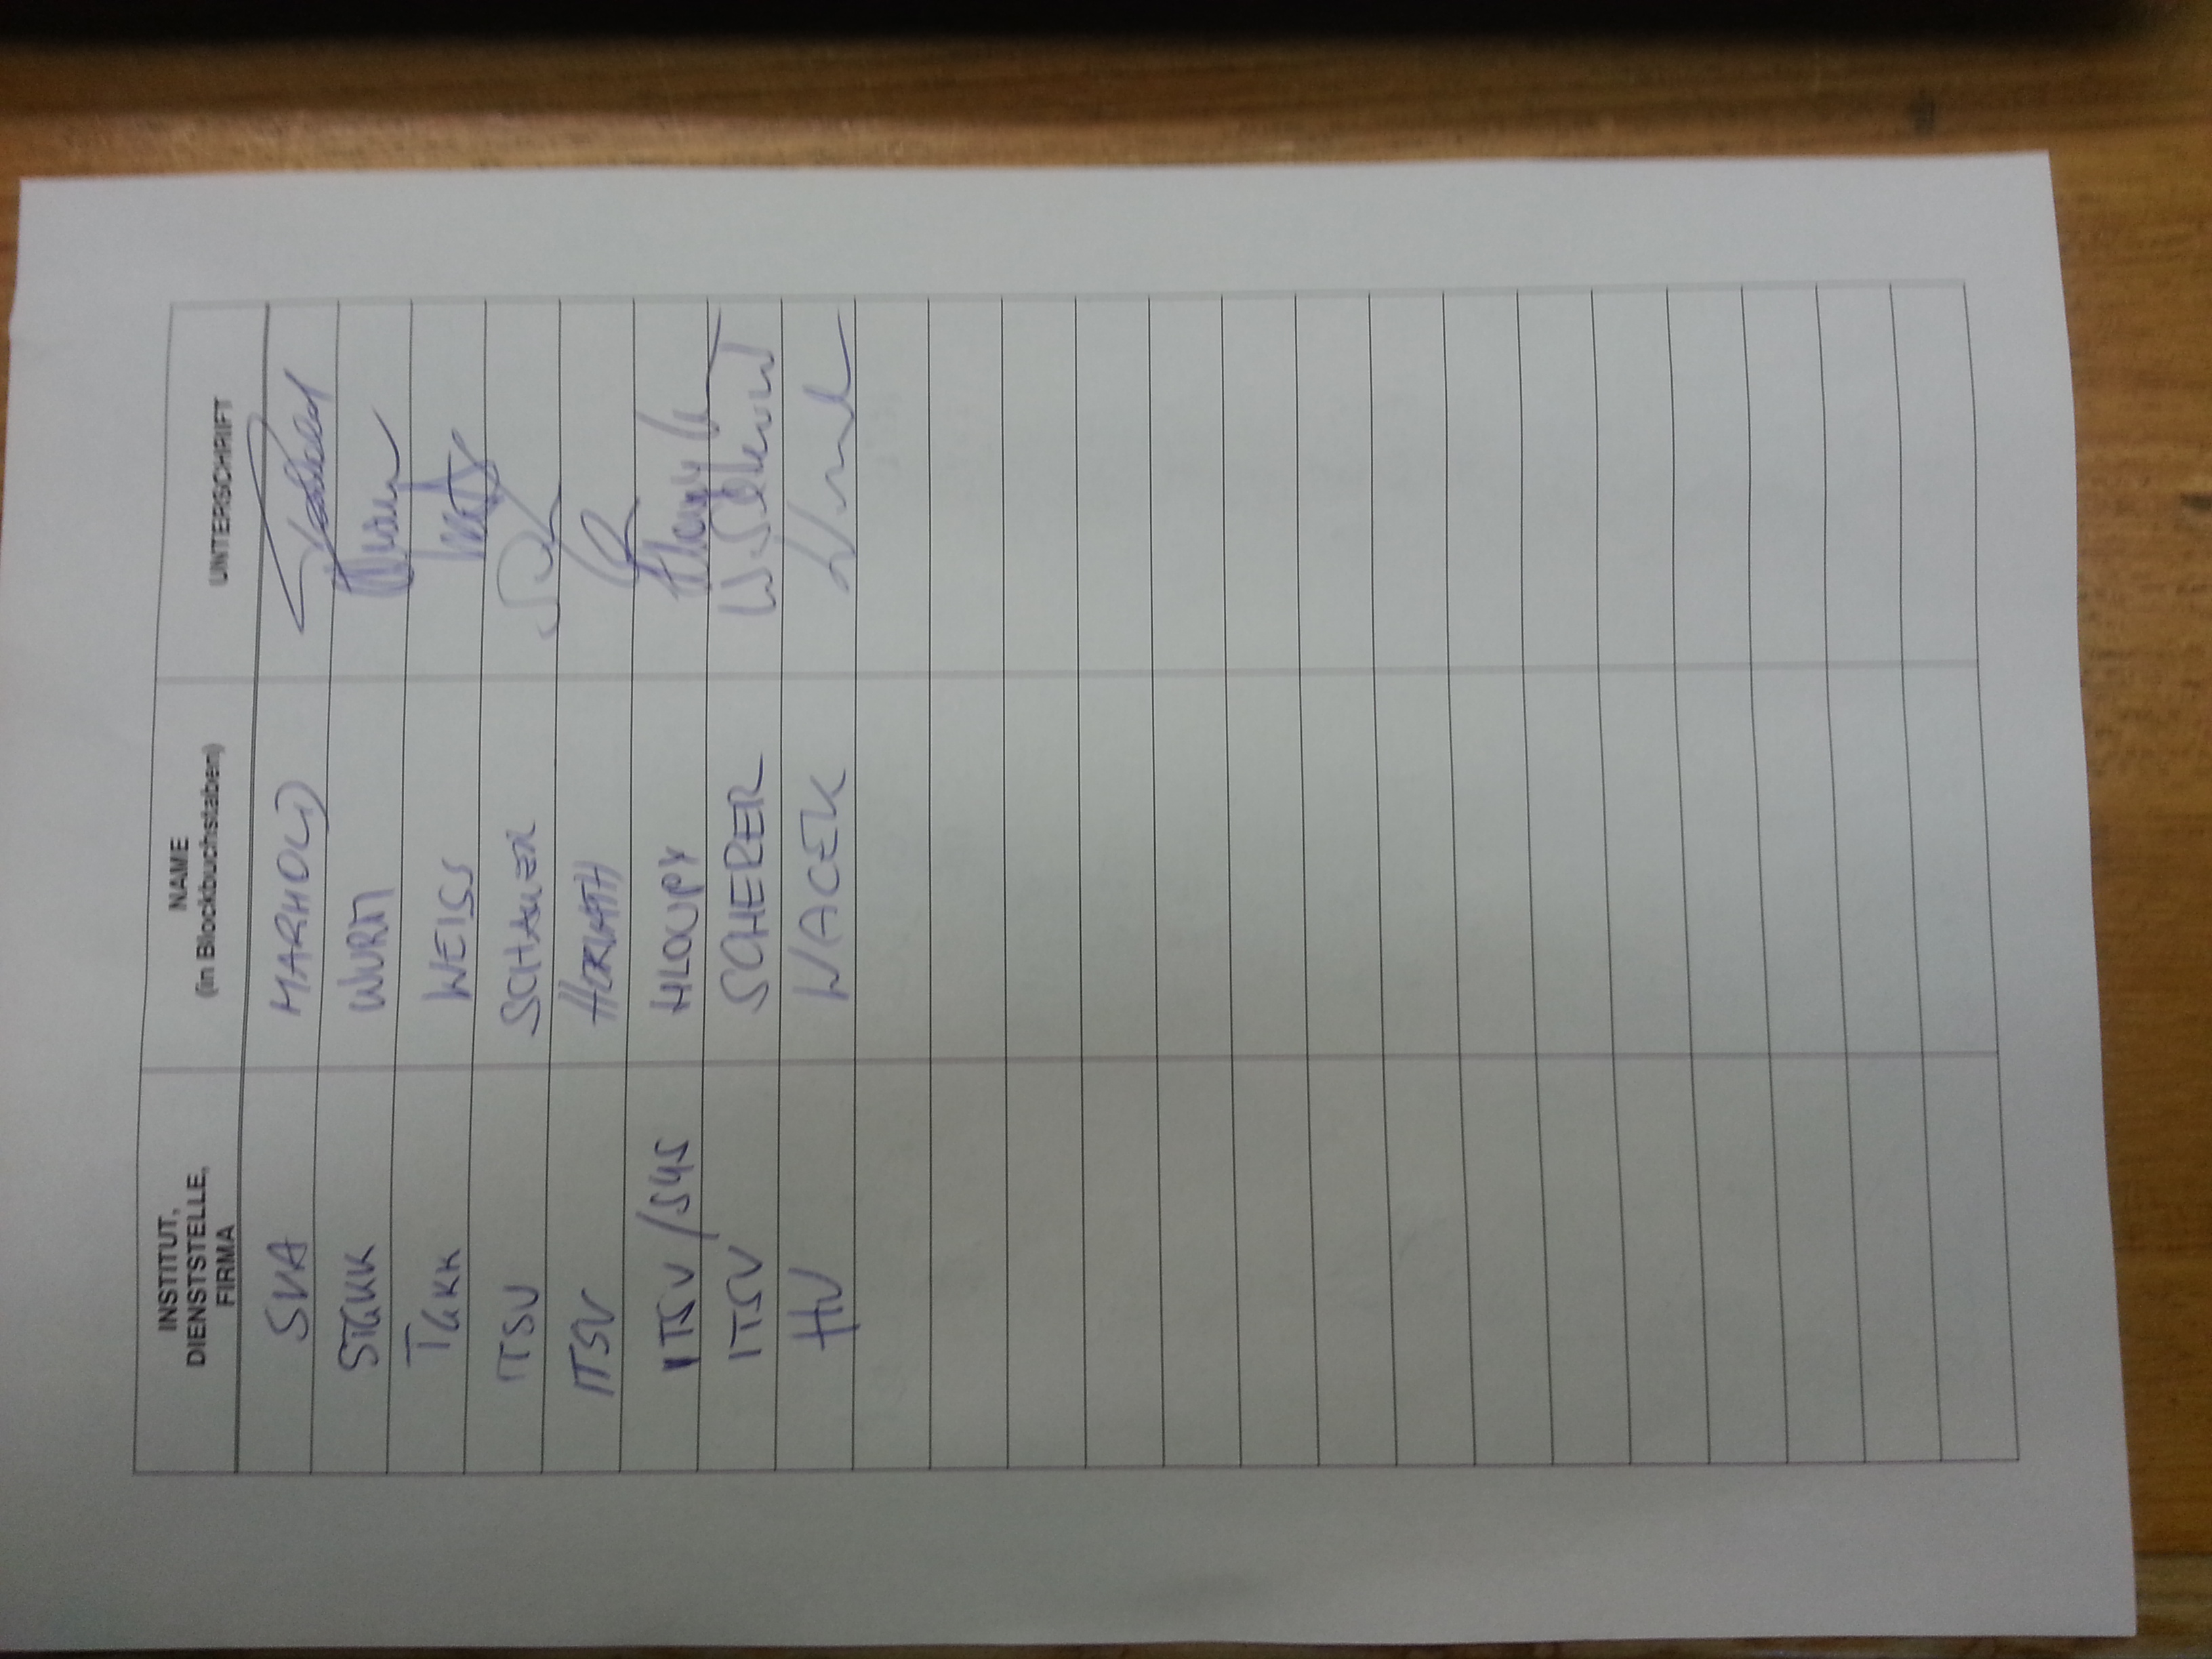 INSTITUT, DIENSTSTELLE, FIRMA NAME (in Blockbuchstaben) UNTERSCHRIFT
SVA MARHOLD
STGKK WURM
TGKK WEISS
ITSV SCHAUER
ITSV HORVATH
ITSV/SYS HLOUPY
ITSV SCHERER
HV WACEK